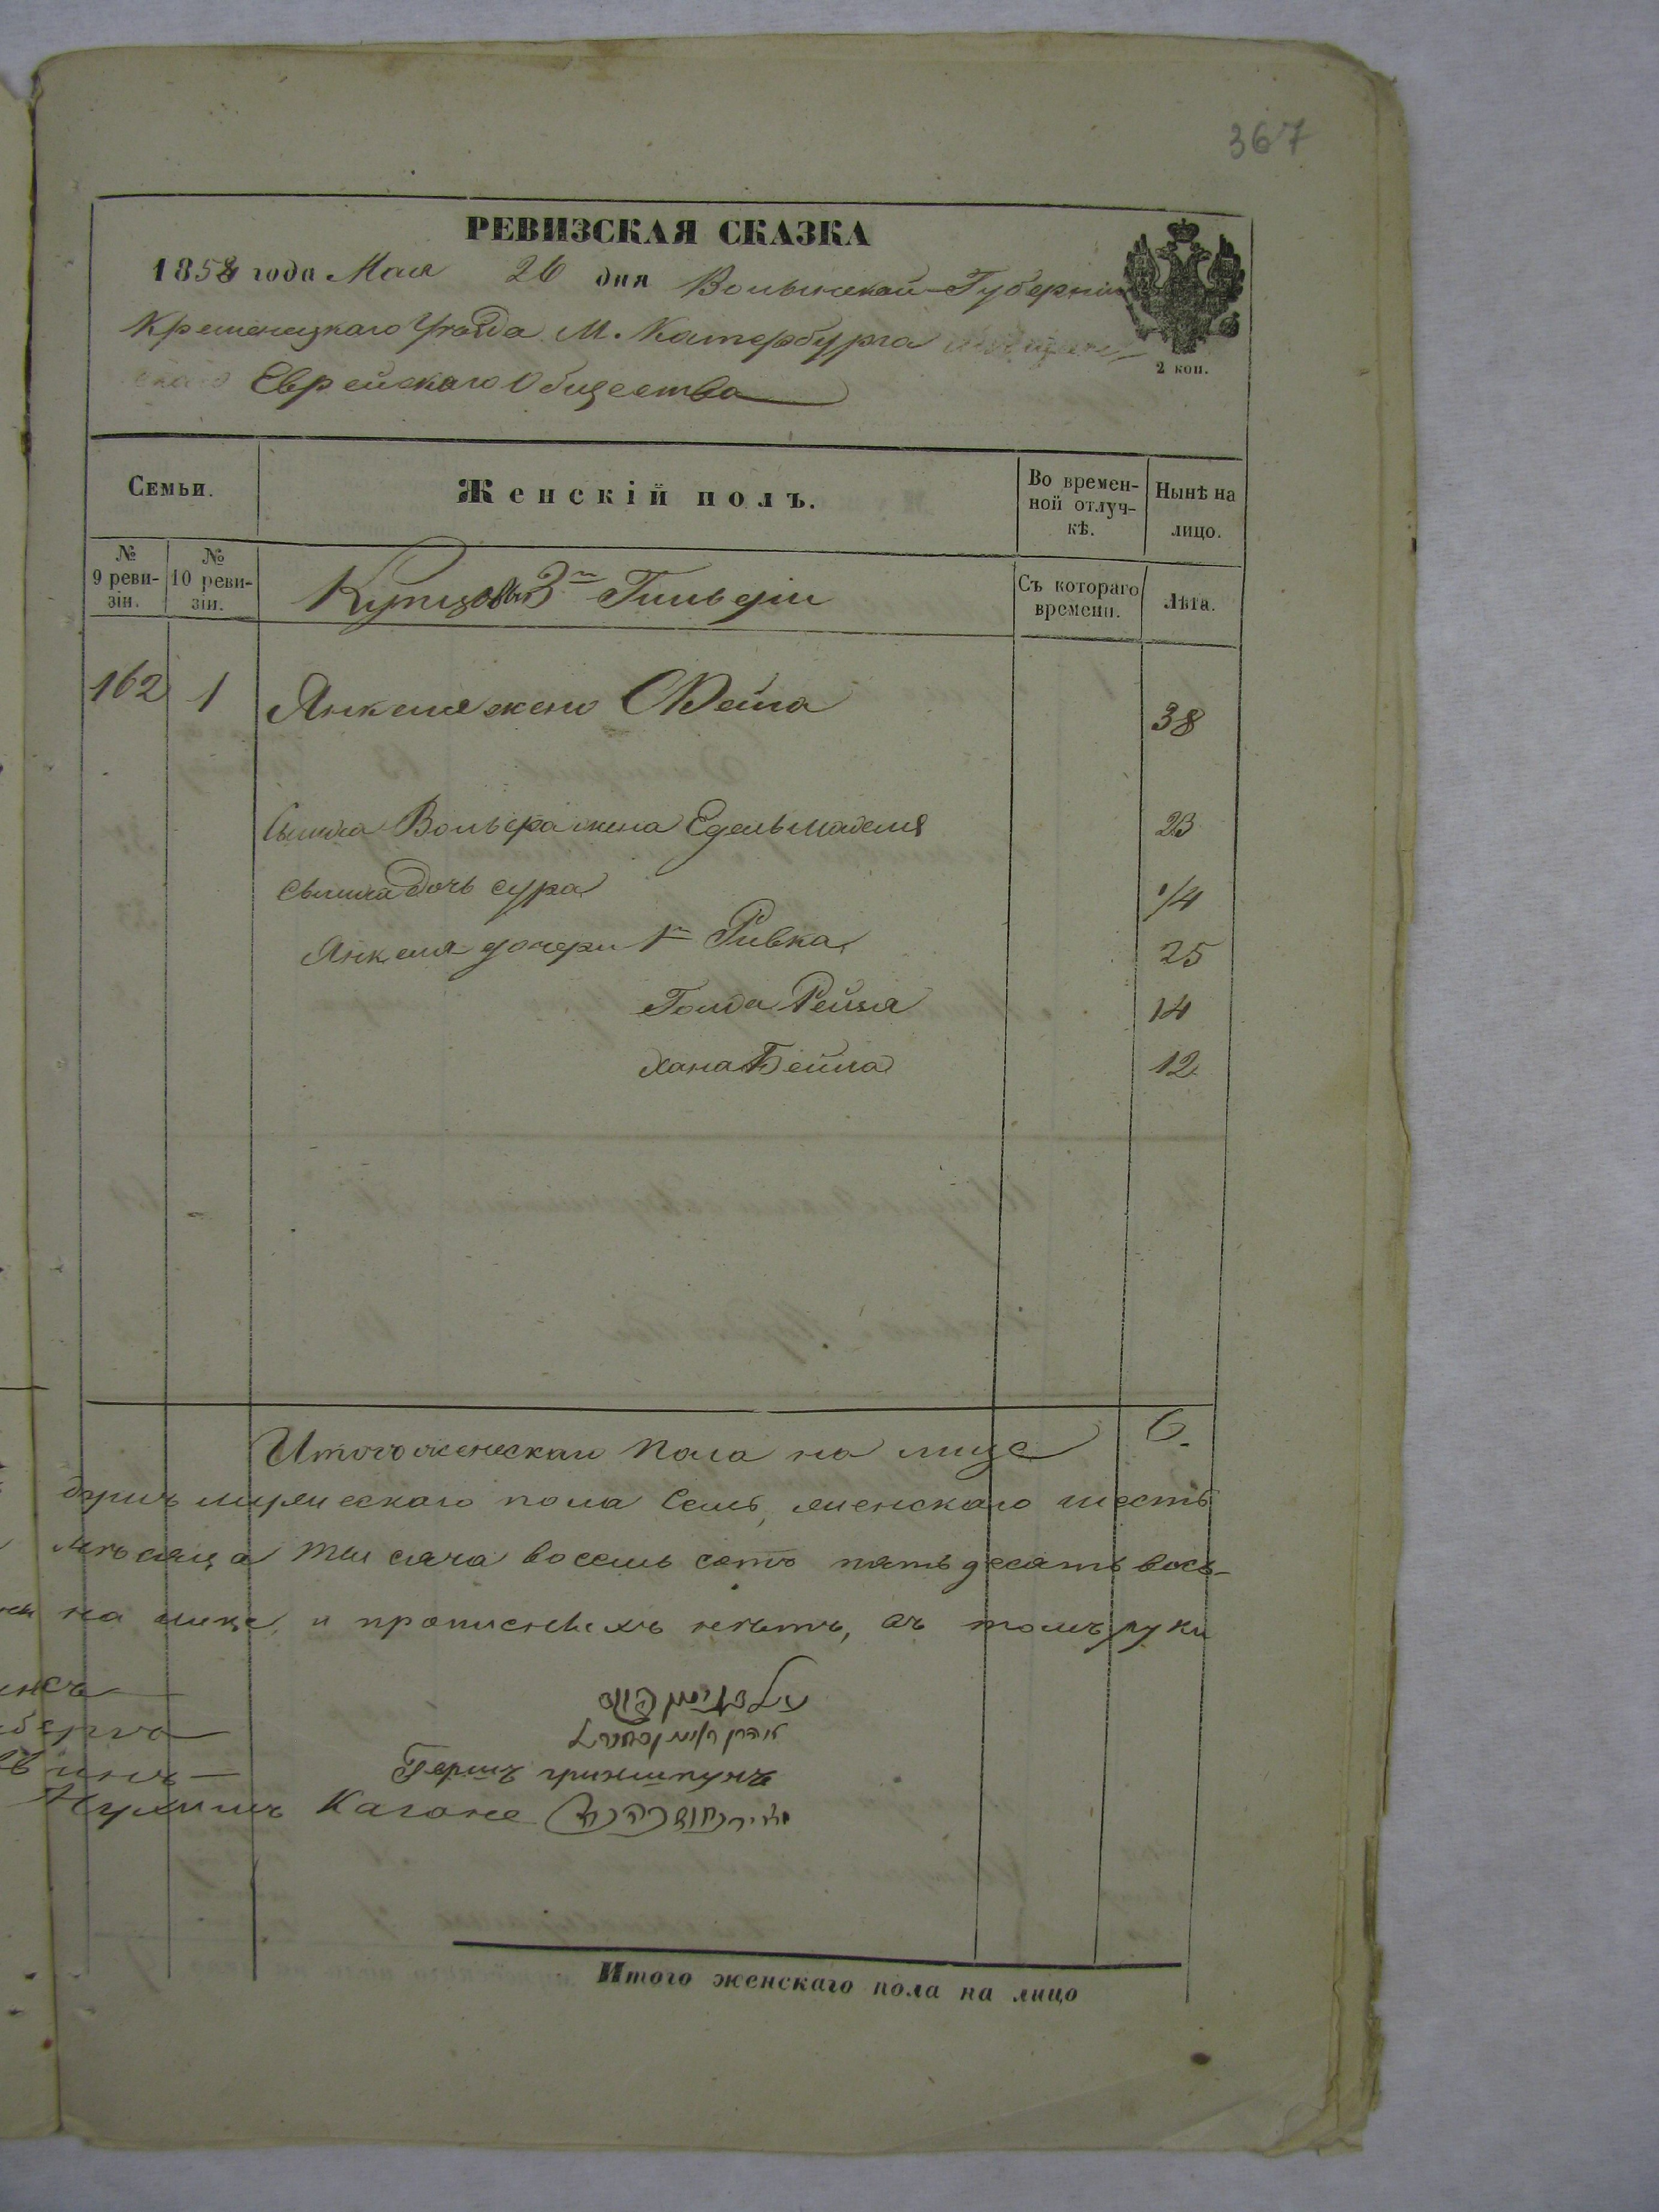 367
РЕВИЗСКАЯ СКАЗКА
1858 года Мая 26 дня Волынской Губерніи
Кременецкаго Уѣзда М. Катербурга
Еврейскаго Общества
2 коп.
Семьи.
Женскій полъ.
Во времен-
ной отлуч-
кѣ.
Нынѣ на
лицо.
№
9 реви-
зіи.
№
10 реви-
зіи.
Купцовъ 3й Гильдіи
Съ котораго
времени.
Лѣта.
162 1 Янкеля жена 38
Сынка Вольфа жена Едель 23
дочь сура 1/4
Янкеля дочери 1я Ривка 25
Голда Рейзя 14
Хана Бейла 12
Итого женскаго пола на лице 6.
душъ мужескаго пола семь, женскаго шесть
мѣсяца тысяча восемь сотъ пятьдесятъ вось-
на лице, и прописныхъ нѣтъ, въ томъ руки
Гершъ гринштунъ
Нухимъ Кагане
Итого женскаго пола на лицо